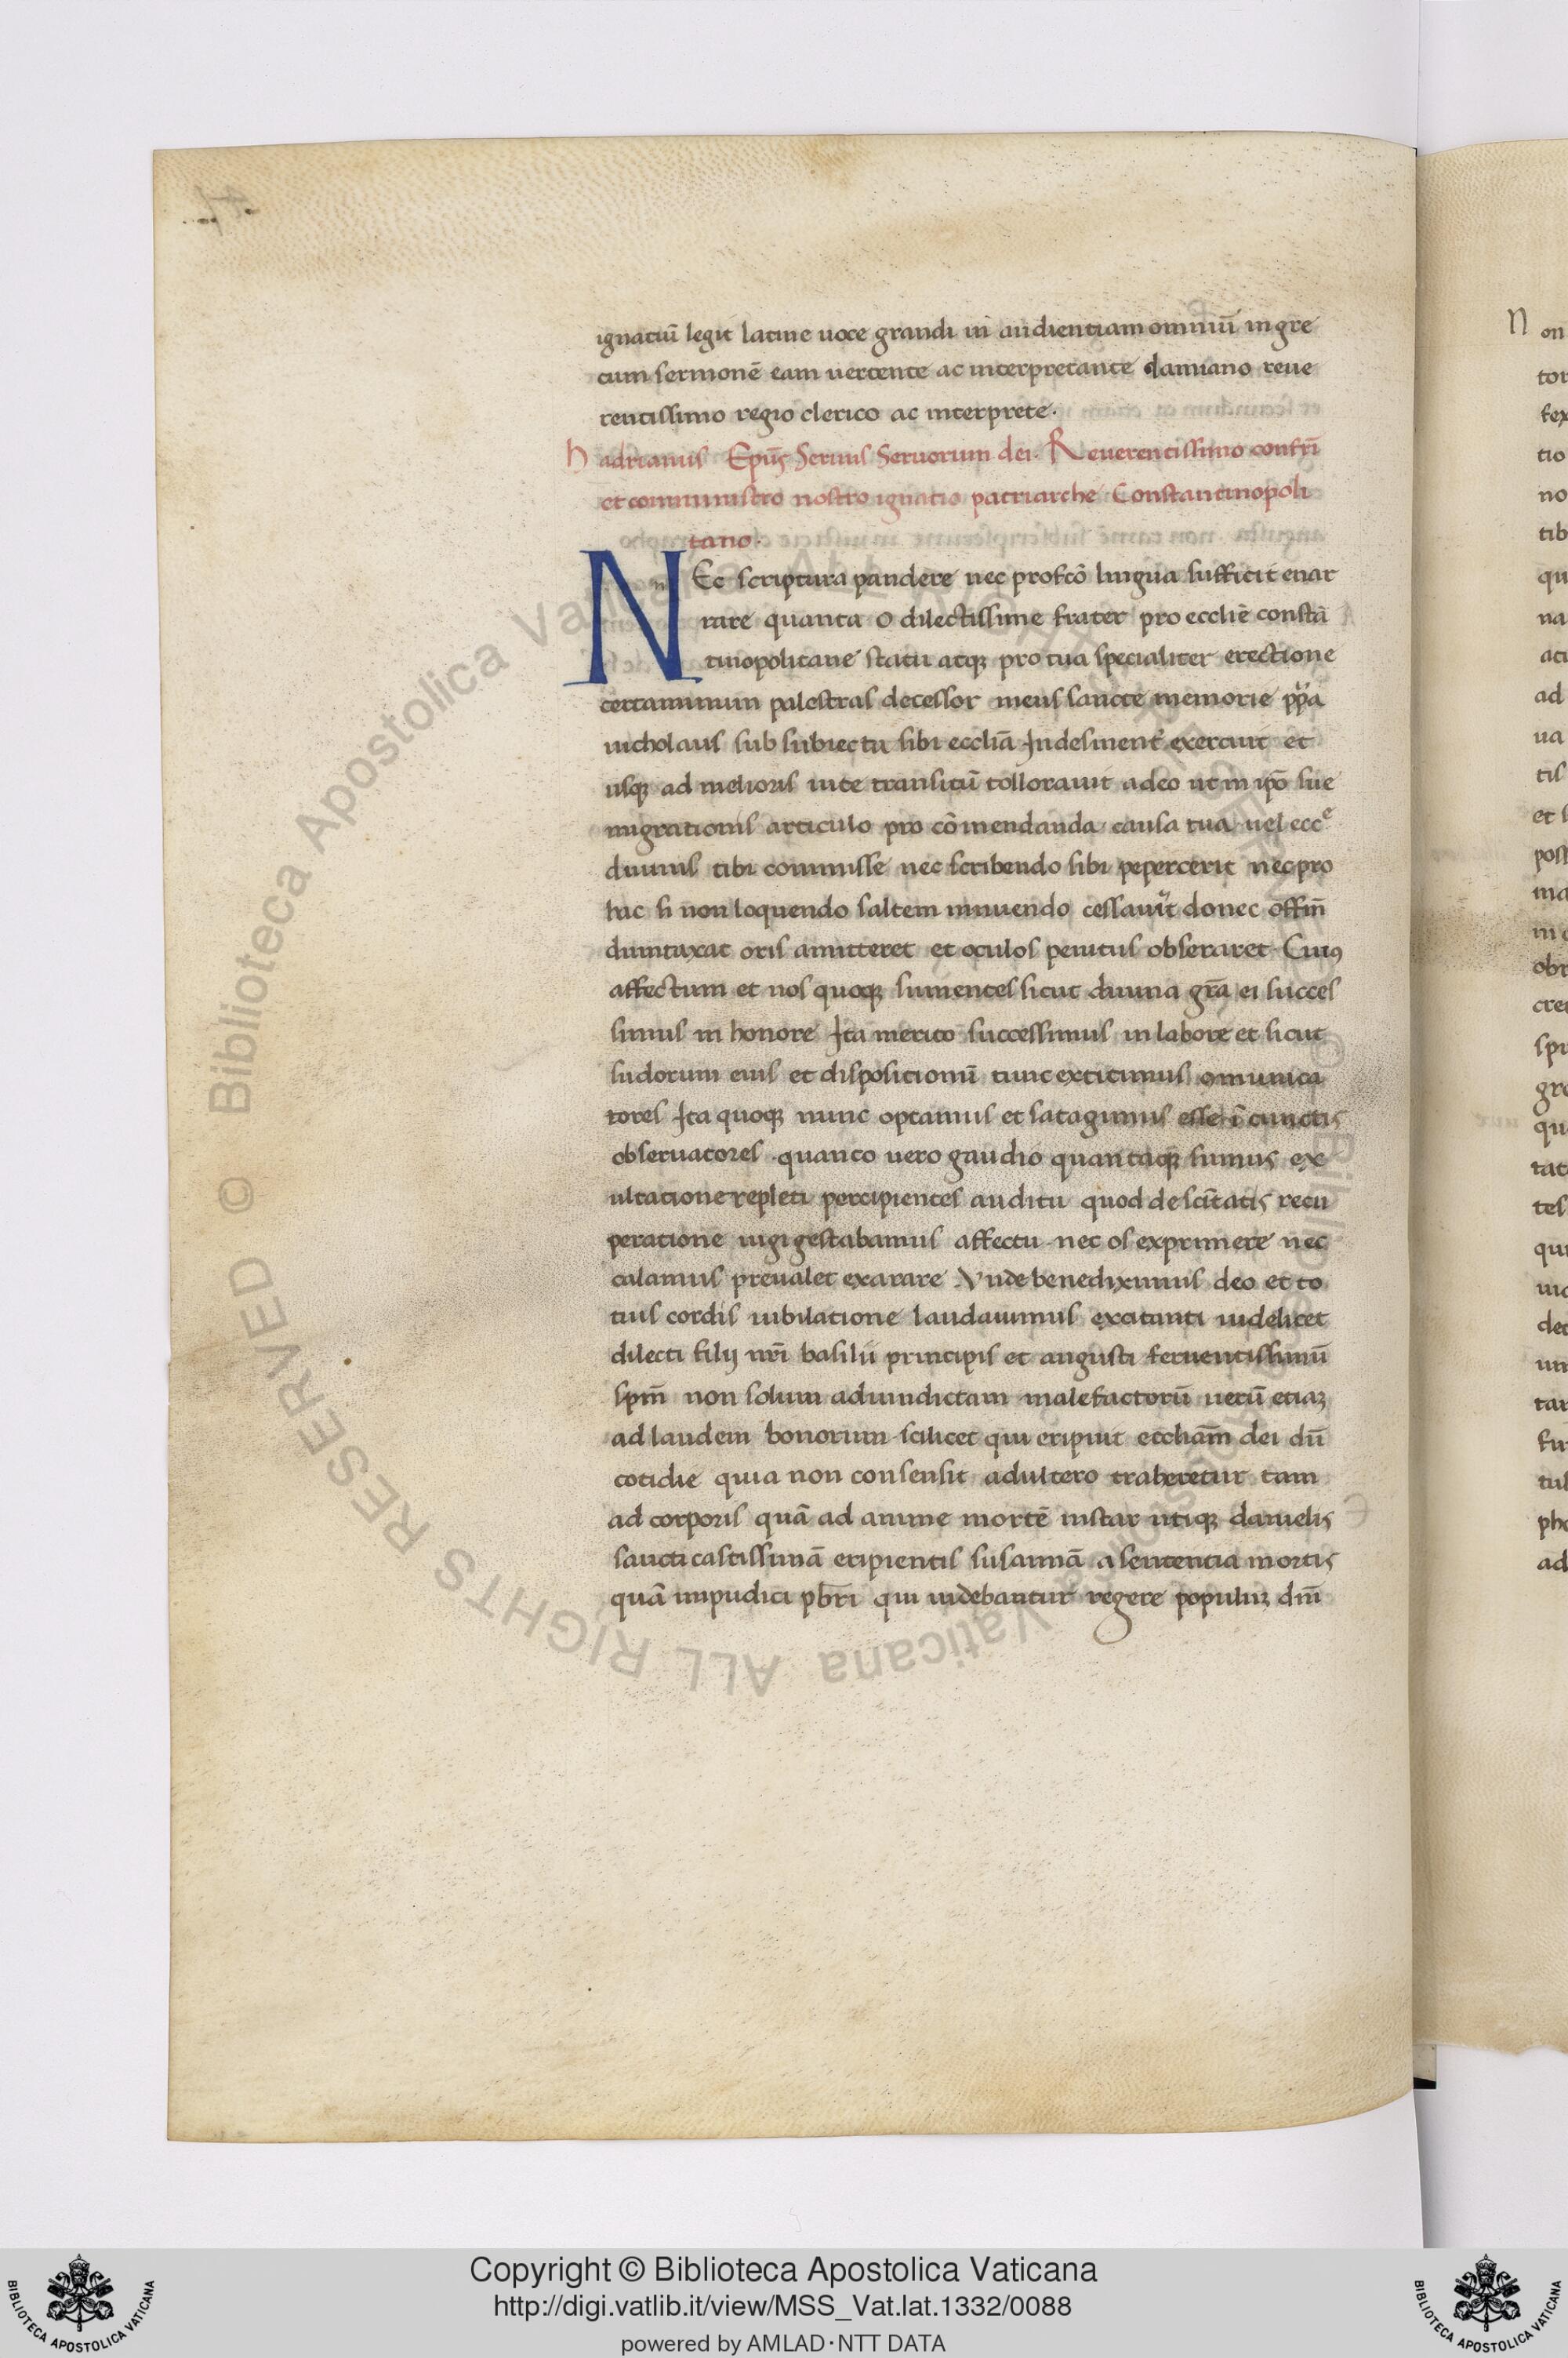 ignatiū legit latine uoce grandi in audientiam omniū in gre
cum sermonē eam uertente ac interpretante damiano reue
rentissimo regio clerico ac interprete.
hadrianus Epūs Seruus Seruorum dei. Reuerentissimo confrī
et comministro nostro ignatio patriarche Constantinopoli
tano.
NEc scriptura pandere nec profcō lingua sufficit enar
rare quanta o dilectissime frater pro ecclīe constā
tinopolitane statu atq pro tua specialiter erectione
certaminum palestras decessor meus sancte memorie pp̄a
nicholaus sub subiecta sibi eccliā Indesinent exercuit et
usq ad melioris uite transitū tollorauit adeo ut in ipō sue
migrationis articulo pro cōmendanda causa tua uel ecce
diuinis tibi commisse nec scribendo sibi pepercerit nec pro
hac si non loquendo saltem innuendo cessauit donec offm̄
dumtaxat oris amitteret et oculos penitus obseraret Cuiꝯ
affectum et nos quoq sumentes sicut diuina grā ei succes
simus in honore Ita merito successimus in labore et sicut
sudorum eius et dispositionū tunc extitimus omunica
tores Ita quoq nunc optamus et satagimus esse ī cunctis
obseruatores quanto uero gaudio quantaq sumus ex
ultatione repleti percipientes auditu quod de scītatis recu
peratione iugi gestabamus affectu nec os exprimere nec
calamus preualet exarare Vnde benediximus deo et to
tius cordis iubilatione laudauimus excitanti uidelicet
dilecti filij nrī basilii principis et augusti feruentissimū
spm̄ non solum ad uindictam malefactorū uerū etiaꝫ
ad laudem bonorum scilicet qui eripuit eccliam̄ dei dū
cotidie quia non consensit adultero traheretur tam
ad corporis quā ad anime mortē instar utiq danielis
sancti castissimā eripientis susannā a sententia mortis
quā impudici pbrī qui uidebantur regere populuꝫ dm̄
Copyright © Biblioteca Apostolica Vaticana
http://digi.vatlib.it/view/MSS_Vat.lat.1332/0088
powered by AMLAD·NTT DATA
BIBLIOTECA APOSTOLICA VATICANA
BIBLIOTECA APOSTOLICA VATICANA
© Biblioteca Apostolica Vaticana ALL RIGHTS RESERVED